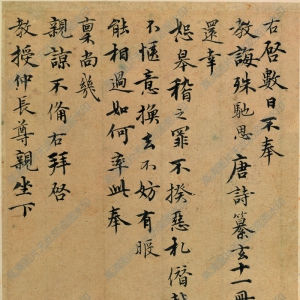 右啓數日不奉
教誨殊馳思唐詩纂玄十一冊
還幸
恕晷稽之罪不揆惡札僭
不愜意換去不妨有暇
能相過如何率此奉
稟尚幾
親諒不備右拜啓
教授仲長尊親坐下